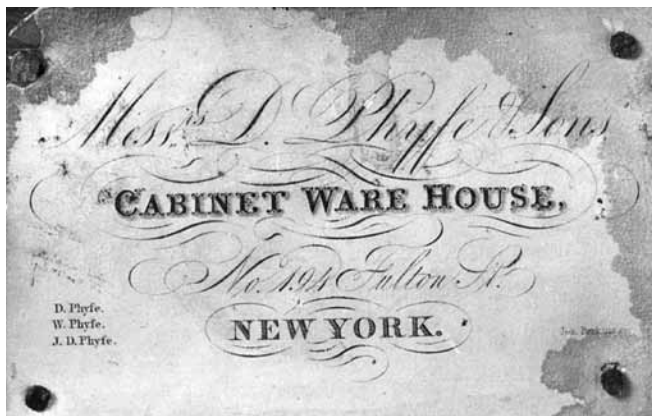 Messrs D. Phyfe & Sons
CABINET WARE HOUSE,
No. 194 Fulton St.
NEW YORK.
D. Phyfe.
W. Phyfe.
J. D. Phyfe.